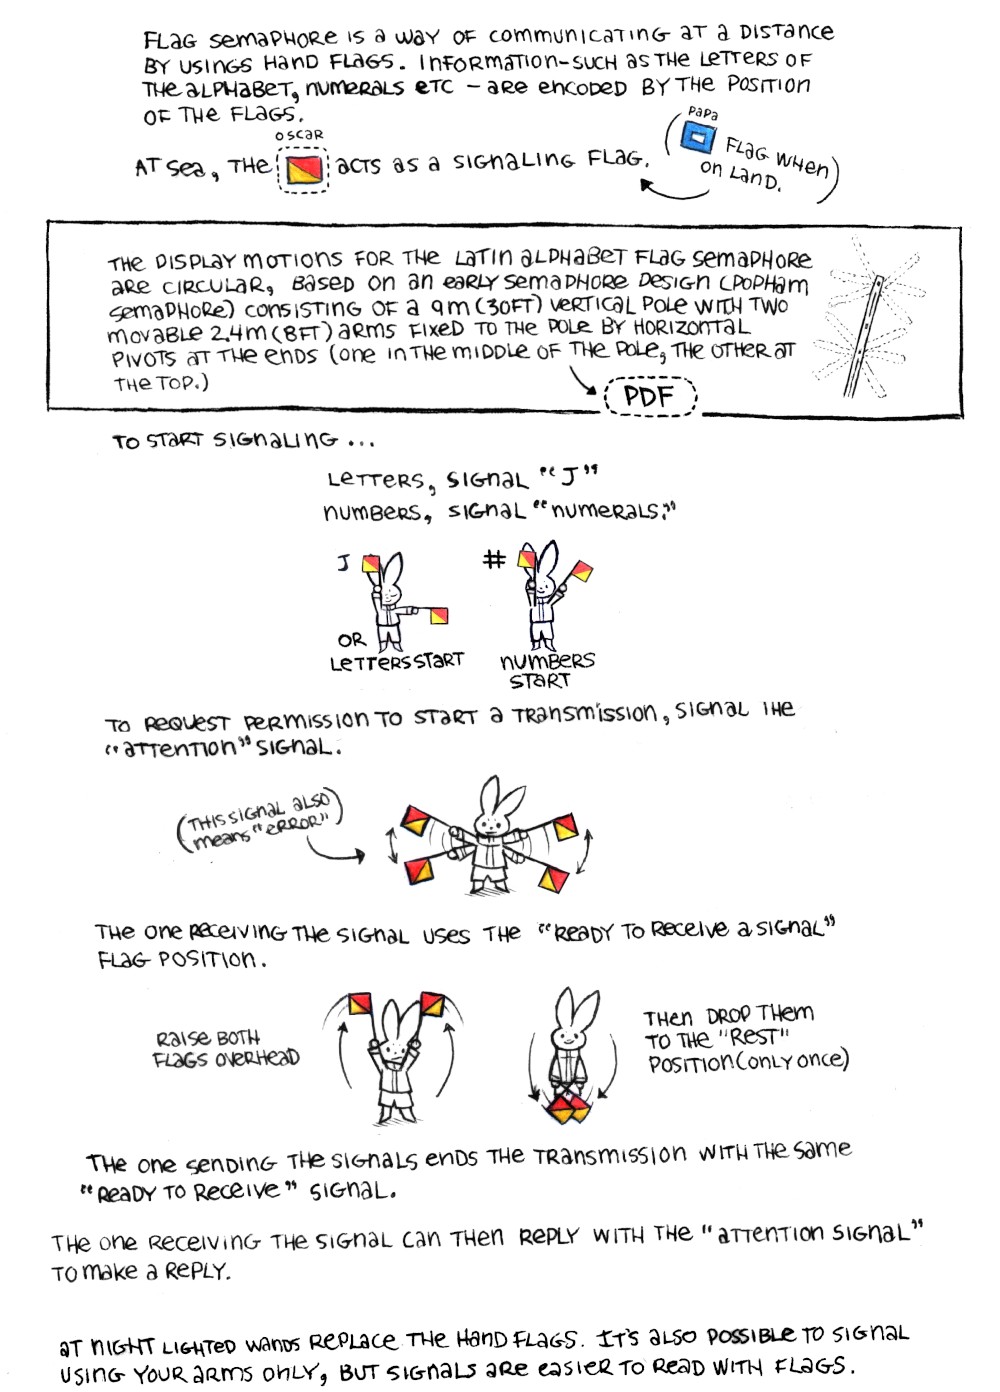 FLAG SEMAPHORE IS A WAY OF COMMUNICATING AT A DISTANCE
BY USINGS HAND FLAGS. INFORMATION-SUCH AS THE LETTERS OF
THE ALPHABET, NUMERALS ETC - ARE ENCODED BY THE POSITION
OF THE FLAGS.
OSCAR
PAPA
AT SEA, THE ACTS AS A SIGNALING FLAG.
(FLAG WHEN
ON LAND.)
THE DISPLAY MOTIONS FOR THE LATIN ALPHABET FLAG SEMAPHORE
ARE CIRCULAR, BASED ON AN EARLY SEMAPHORE DESIGN (POPHAM
SEMAPHORE) CONSISTING OF A 9M (30FT) VERTICAL POLE WITH TWO
MOVABLE 2.4M (8FT) ARMS FIXED TO THE POLE BY HORIZONTAL
PIVOTS AT THE ENDS (ONE IN THE MIDDLE OF THE POLE, THE OTHER AT
THE TOP.)
PDF
TO START SIGNALING ...
LETTERS, SIGNAL "J"
NUMBERS, SIGNAL "NUMERALS."
J
#
OR
LETTERS START
NUMBERS
START
TO REQUEST PERMISSION TO START A TRANSMISSION, SIGNAL THE
"ATTENTION" SIGNAL.
(THIS SIGNAL ALSO
MEANS "ERROR")
THE ONE RECEIVING THE SIGNAL USES THE "READY TO RECEIVE A SIGNAL"
FLAG POSITION.
RAISE BOTH
FLAGS OVERHEAD
THEN DROP THEM
TO THE "REST"
POSITION.(ONLY ONCE)
THE ONE SENDING THE SIGNALS ENDS THE TRANSMISSION WITH THE SAME
"READY TO RECEIVE" SIGNAL.
THE ONE RECEIVING THE SIGNAL CAN THEN REPLY WITH THE "ATTENTION SIGNAL"
TO MAKE A REPLY.
AT NIGHT LIGHTED WANDS REPLACE THE HAND FLAGS. IT'S ALSO POSSIBLE TO SIGNAL
USING YOUR ARMS ONLY, BUT SIGNALS ARE EASIER TO READ WITH FLAGS.